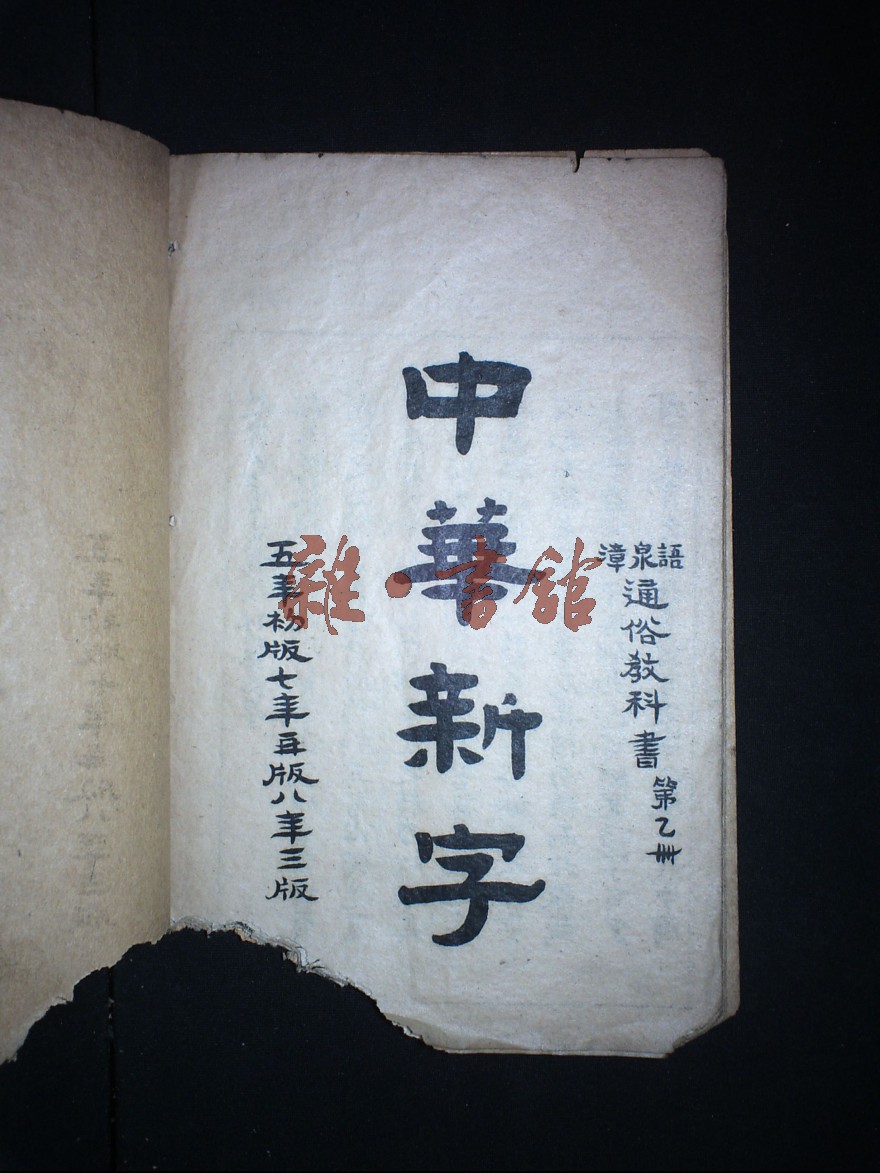 語泉漳通俗教科書 第乙冊
中華新字
五年初版七年再版八年三版
雜·書館